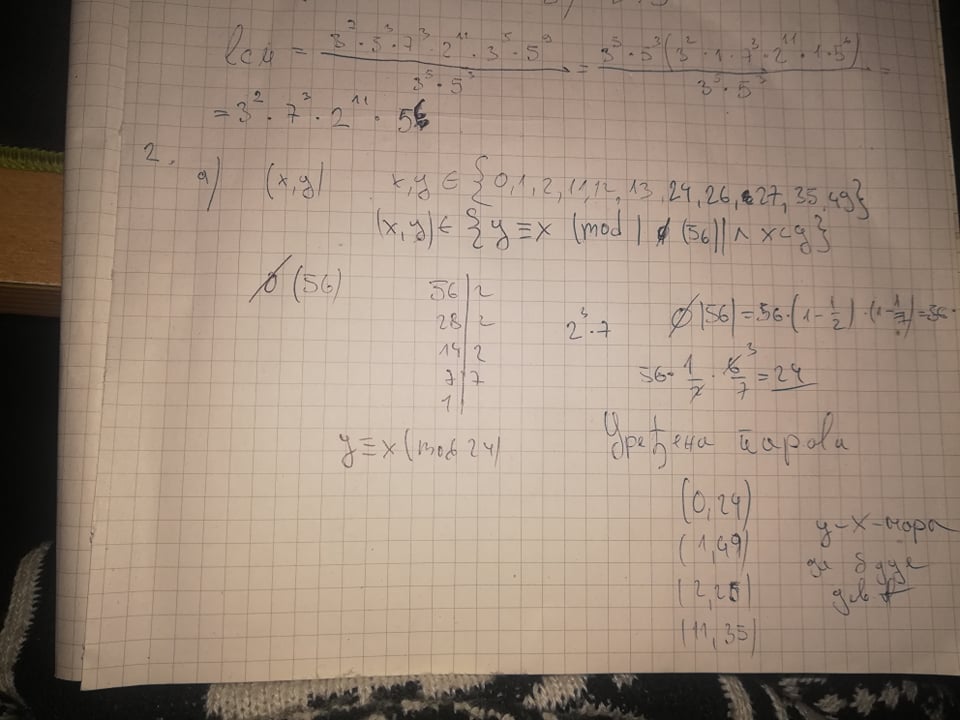 lcm = 3⁷·5³·7³·2¹¹·3⁵·5⁹ / 3⁵·5³ = 3⁵·5³(3²·1·7³·2¹¹·1·5⁶) / 3⁵·5³ =
= 3²·7³·2¹¹·5⁶
2.
a) (x,y) x,y ∈ {0,1,2,11,12,13,24,26,27,35,49}
(x,y) ∈ {y≡x (mod |φ(56)|) ∧ x<y}
φ(56)
56|2
28|2
14|2
7|7
1|
2³·7
φ(56) = 56·(1-1/2)·(1-1/7) = 56·
56·1/2·6/7 = 24
y≡x (mod 24)
Уређена парови
(0,24)
(1,49)
(2,26)
(11,35)
y-x-мора
да буде